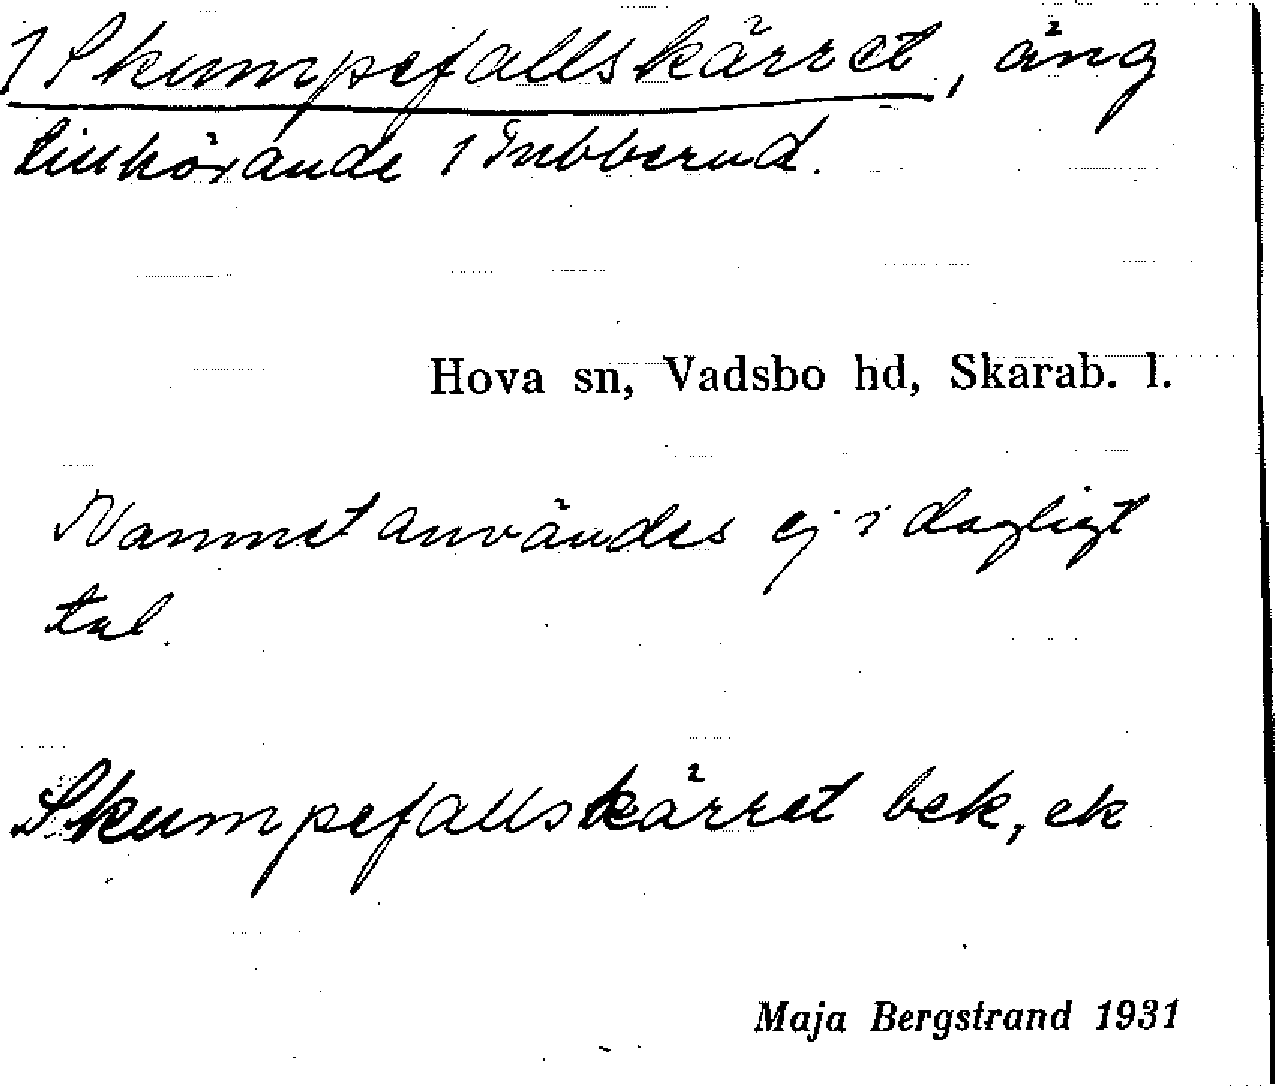 1 Skumpefallskärret, äng
tillhörande 1 Tubberud.
Hova sn, Vadsbo hd, Skarab. l.
Namnet användes ej i dagligt
tal.
Skumpefallskärret bek, ek
Maja Bergstrand 1931